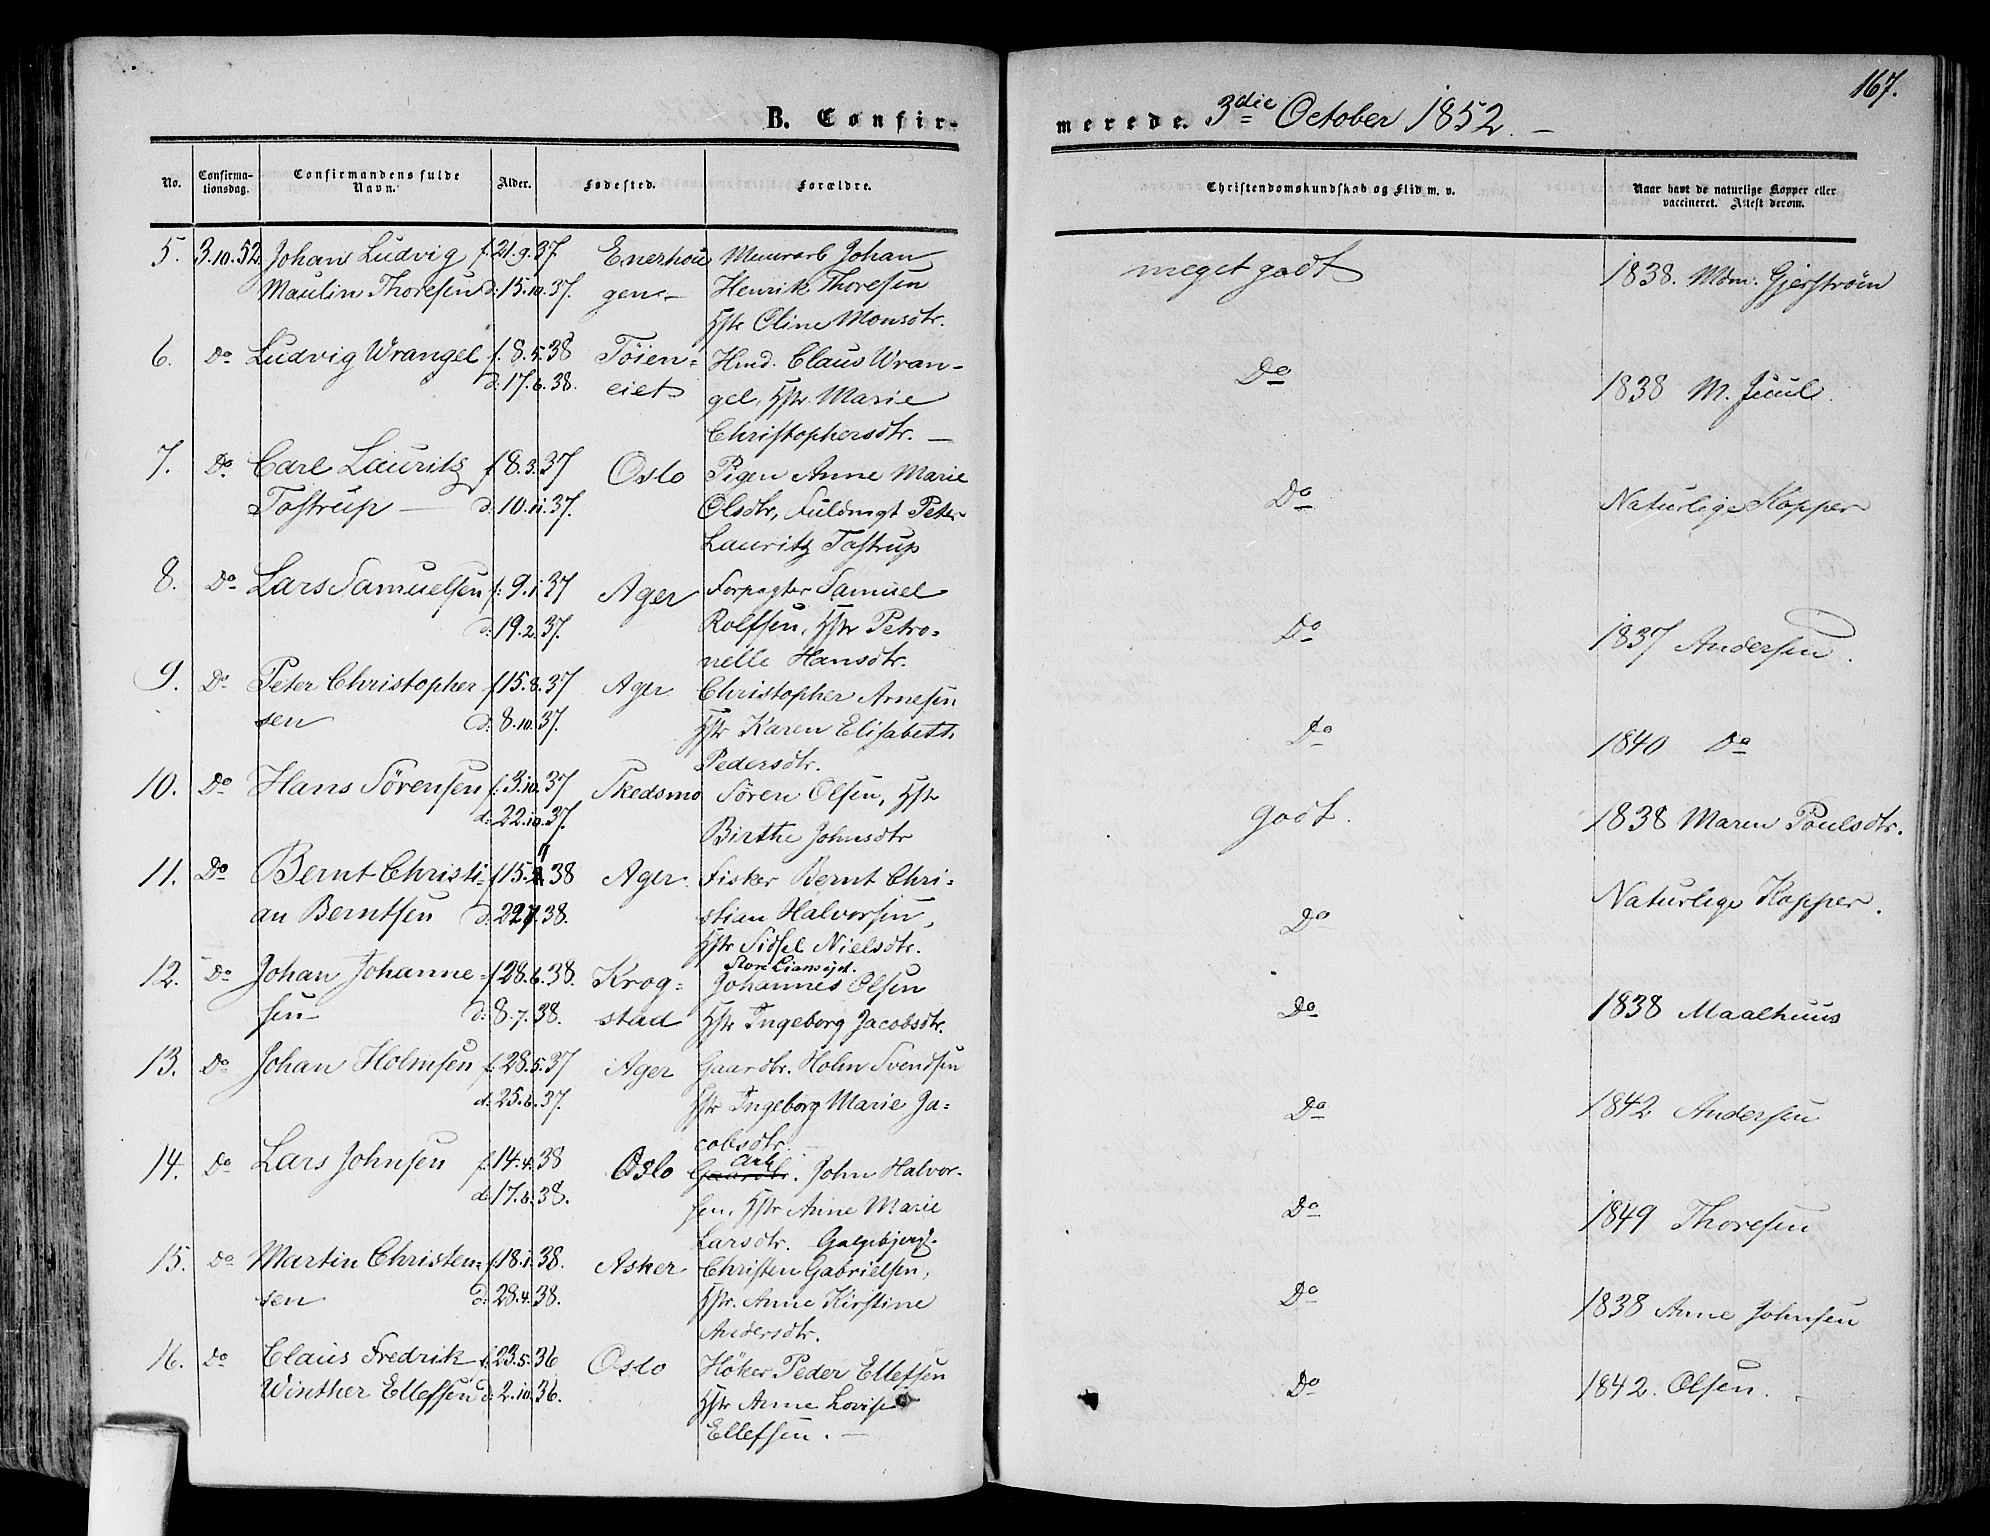 167.
B. Confir- merede. 3die October 1852. —
No. Confirma- tionsdag. Confirmandens fulde Navn. Alder. Fødested. Forældre. Christendomskundskab og Flid m. v. Naar havt de naturlige Kopper eller vaccineret. Attest derom.
5. 3.10.52. Johan Ludvig f. 21.9.37. Enerhou Muurarb Johan meget godt 1838. Mdm: Gjerstrøm
Maulin Thoresen d: 15.10.37. gen — Henrik Thoresen
Hstr Oline Monsdtr.
6. Do Ludvig Wrangel f. 8.5.38 Tøien= Hmd. Claus Wran- Do 1838 M. Juul.
d: 17.6.38. eiet gel, Hstr. Marie
Christophersdtr. —
7. Do Carl Lauritz f 8.3.37 Oslo Pigen Anne Marie Do Naturlige Kopper
Tostrup — d: 10.11.37. Olsdtr, Fuldmgt Peter
Lauritz Tostrup
8. Do Lars Samuelsen f: 9.1.37 Ager Forpagter Samuel Do 1837 Andersen.
d: 19.2.37. Rolfsen, Hstr Petro=
nelle Hansdtr.
9. Do Peter Christopher f 15.8.37 Ager Christopher Arnesen Do 1840 Do
sen d: 8.10.37. Hstr Karen Elisabeth
Pedersdtr.
10. Do Hans Sörensen f. 3.10.37 Skedsmo Sören Olsen, Hstr godt. 1838 Maren Poulsdtr.
d: 22.10.37. Birthe Johnsdtr
11. Do Bernt Christi= f 15. 38 Ager. Fisker Bernt Chri= Do Naturlige Kopper.
an Berntsen d: 38. stian Halvorsen,
Hstr Sidsel Nielsdtr.
Store Liansejet.
12. Do Johan Johanne= f. 28.6.38. Krog= Johannes Olsen Do 1838 Maalhuus
sen — d: 8.7.38. stad Hstr Ingeborg Jacobsdtr.
13. Do Johan Holmsen f: 28.5.37 Ager Gaardbr. Holm Svendsen Do 1842 Andersen
d: 25.6.37. Hstr Ingeborg Marie Ja=
cobsdtr. —
Arb
14. Do Lars Johnsen f. 14.4.38 Oslo Gaardbr. John Halvor- Do 1849 Thoresen
d: 17.6.38. sen, Hstr Anne Marie
Larsdtr. Galgebjerget.
15. Do Martin Christen= f. 18.1.38. Asker Christen Gabrielsen, Do 1838 Anne Johnsen
sen d: 28.4.38. Hstr. Anne Kirstine
Andersdtr.
16. Do Claus Fredrik f. 23.5.36 Oslo Höker Peder Ellefsen Do 1842. Olsen. -
Winther Ellefsen d: 2.10.36. Hstr Anne Lovise
Ellefsen. —